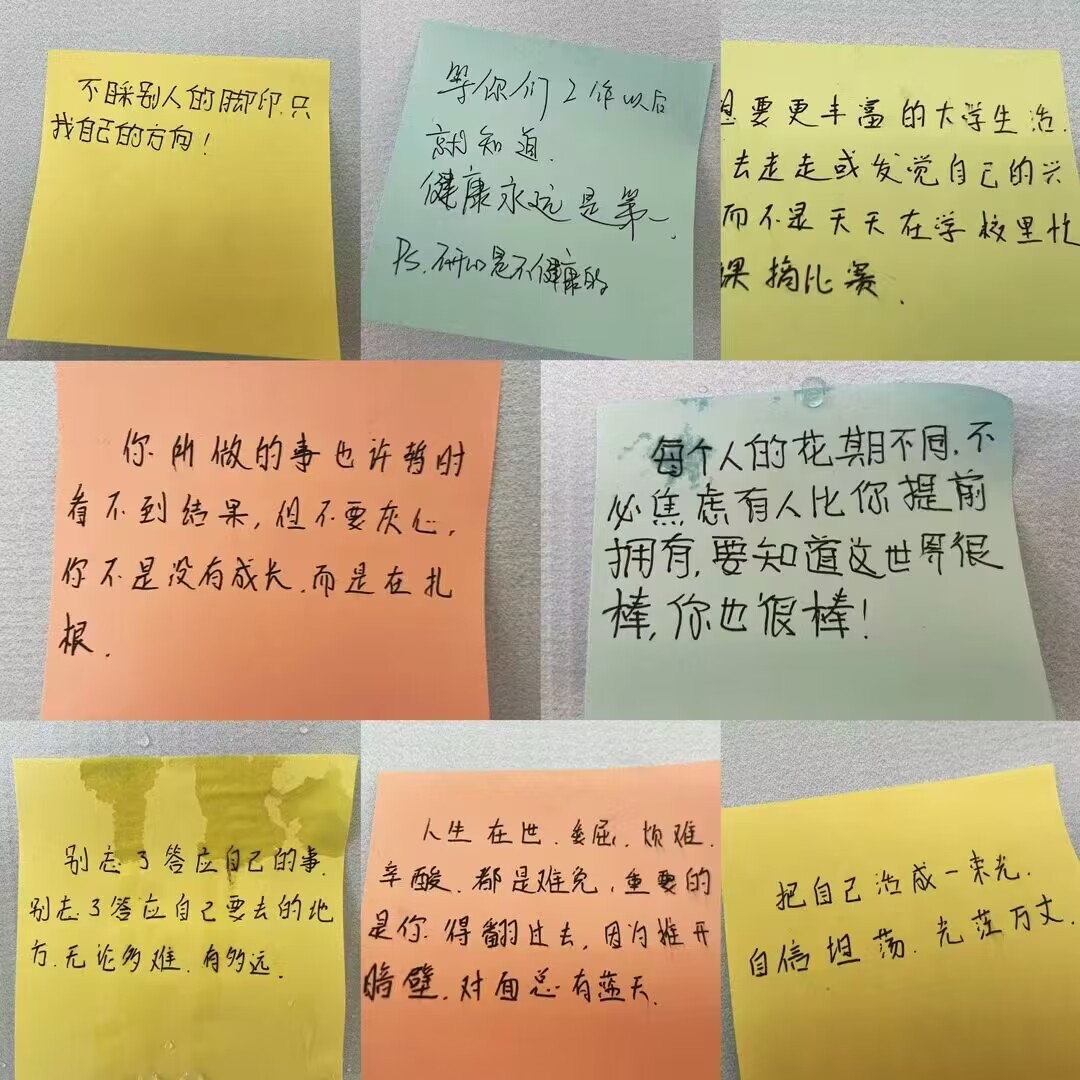 不踩别人的脚印.只
找自己的方向!
等你们工作以后
就知道.
健康永远是第一.
Ps.不开心是不健康的
想要更丰富的大学生活.
去走走或发觉自己的兴
而不是天天在学校里忙
课搞比赛.
你所做的事也许暂时
看不到结果,但不要灰心,
你不是没有成长.而是在扎
根.
每个人的花期不同,不
必焦虑有人比你提前
拥有,要知道这世界很
棒,你也很棒!
别忘了答应自己的事.
别忘了答应自己要去的地
方.无论多难.有多远.
人生在世.委屈.烦难.
辛酸.都是难免,重要的
是你.得翻过去,因为推开
暗壁.对面总有蓝天.
把自己活成一束光.
自信坦荡.光茫万丈.